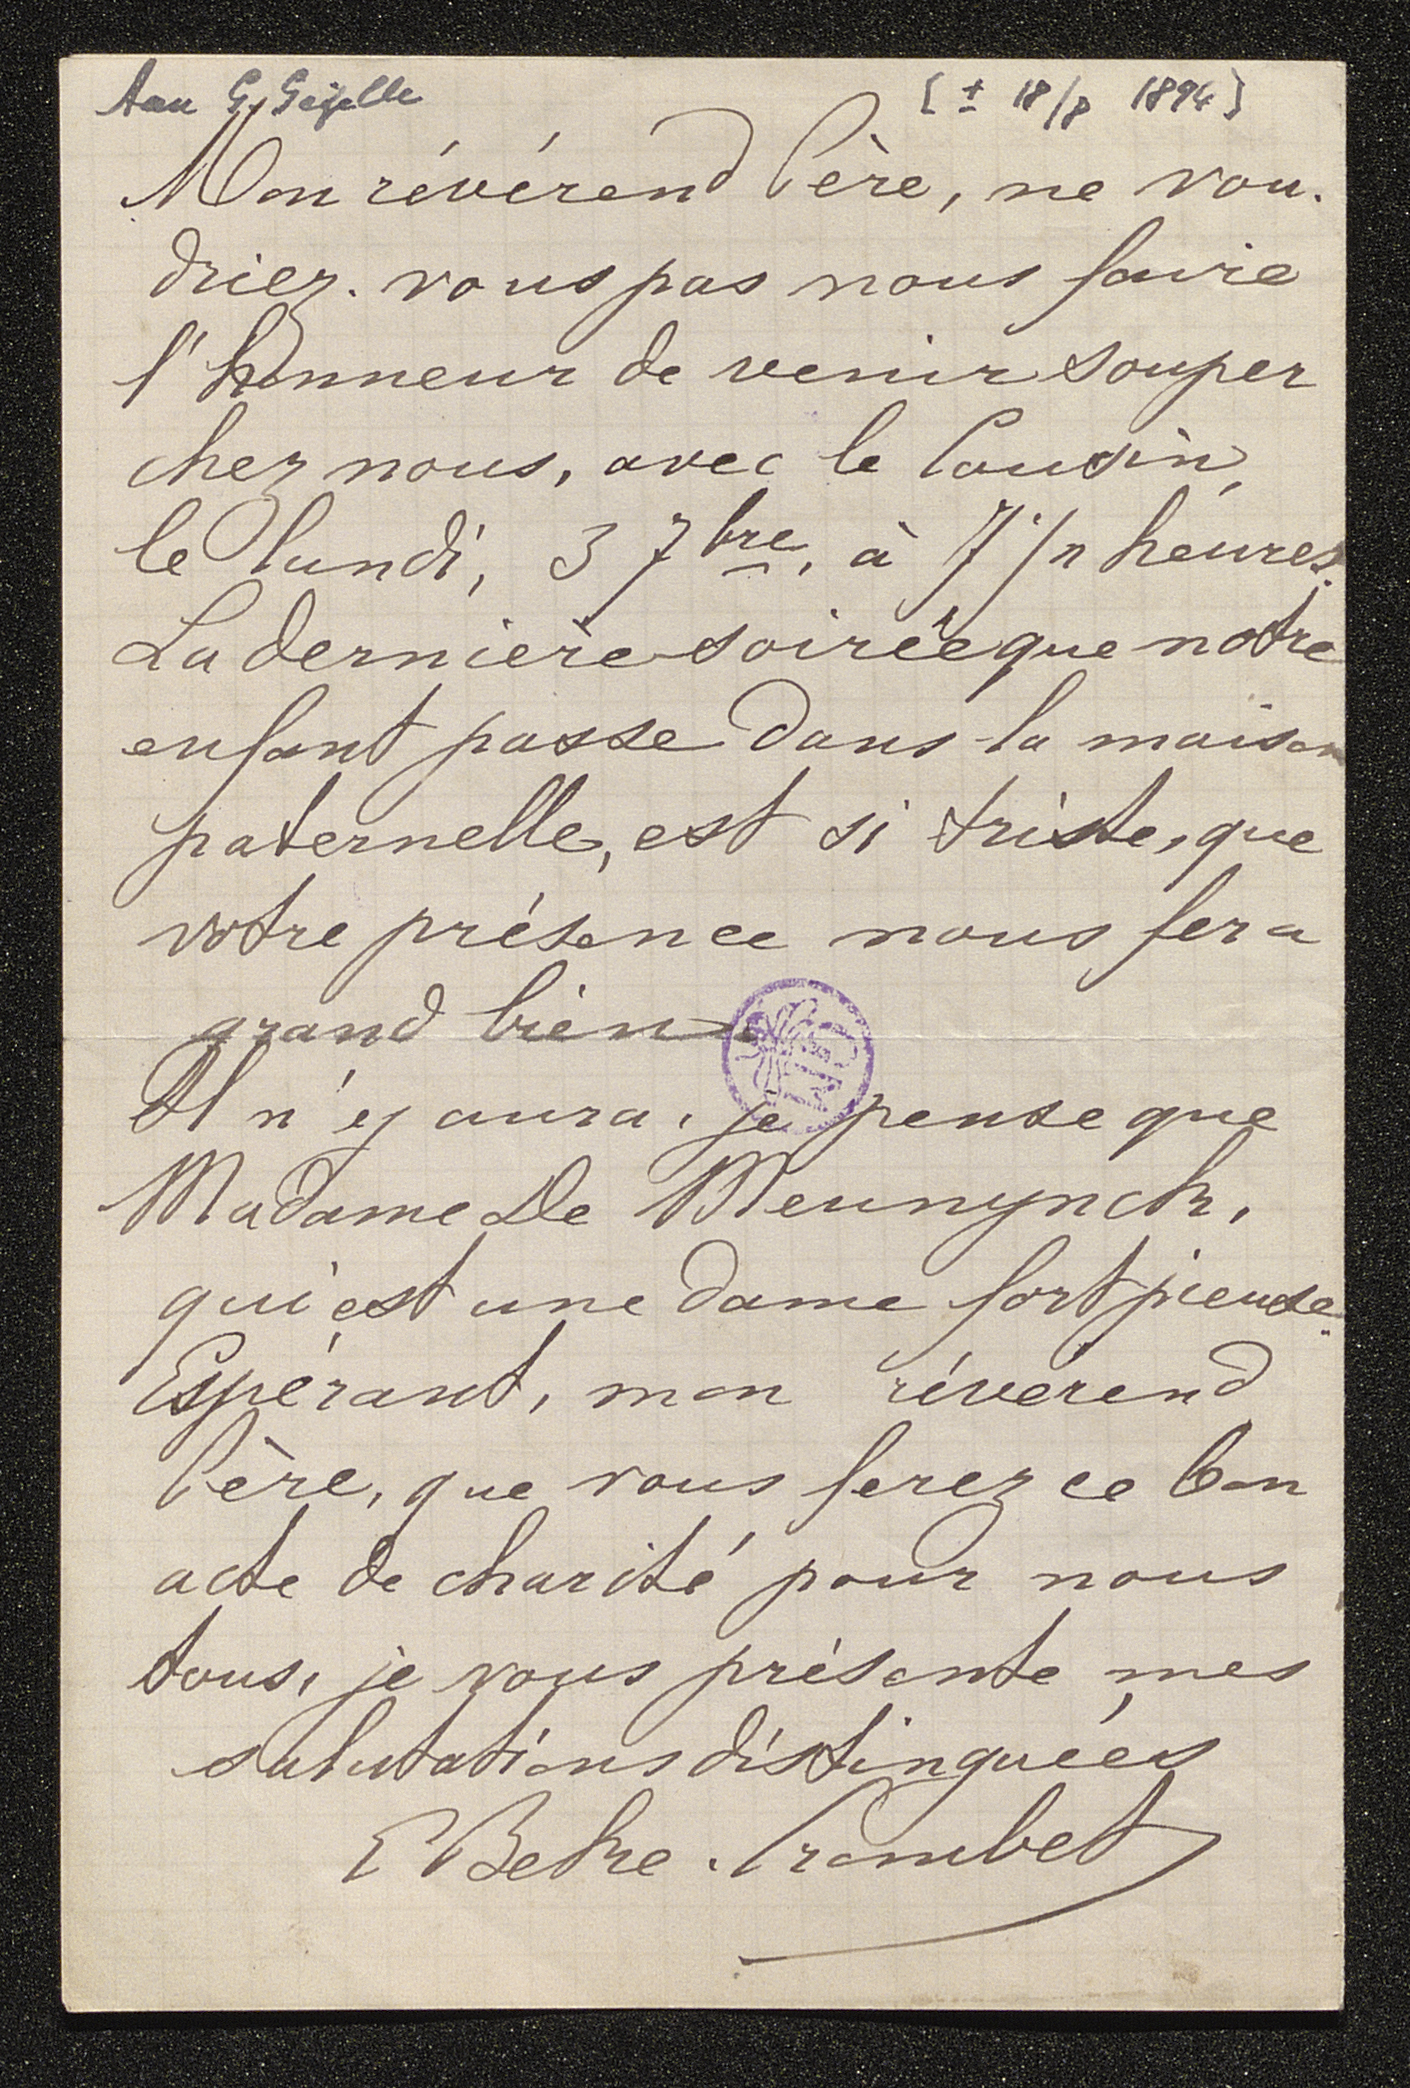 Aan G. Gezelle [± 18/8 1894]
Mon révérend Père, ne vou-
driez-vous pas nous faire
l'honneur de venir souper
chez nous, avec le Cousin,
le lundi, 3 7bre, à 7 1/2 heures.
La dernière soirée que notre
enfant passe dans la maison
paternelle, est si triste, que
votre présence nous fera
grand bien.
Il n'y aura, je pense que
Madame De Meunynck,
qui est une dame fort pieuse.
Espérant, mon révérend
Père, que vous ferez ce bon
acte de charité pour nous
tous, je vous présente mes
salutations distinguées
E Bethe. Crombet